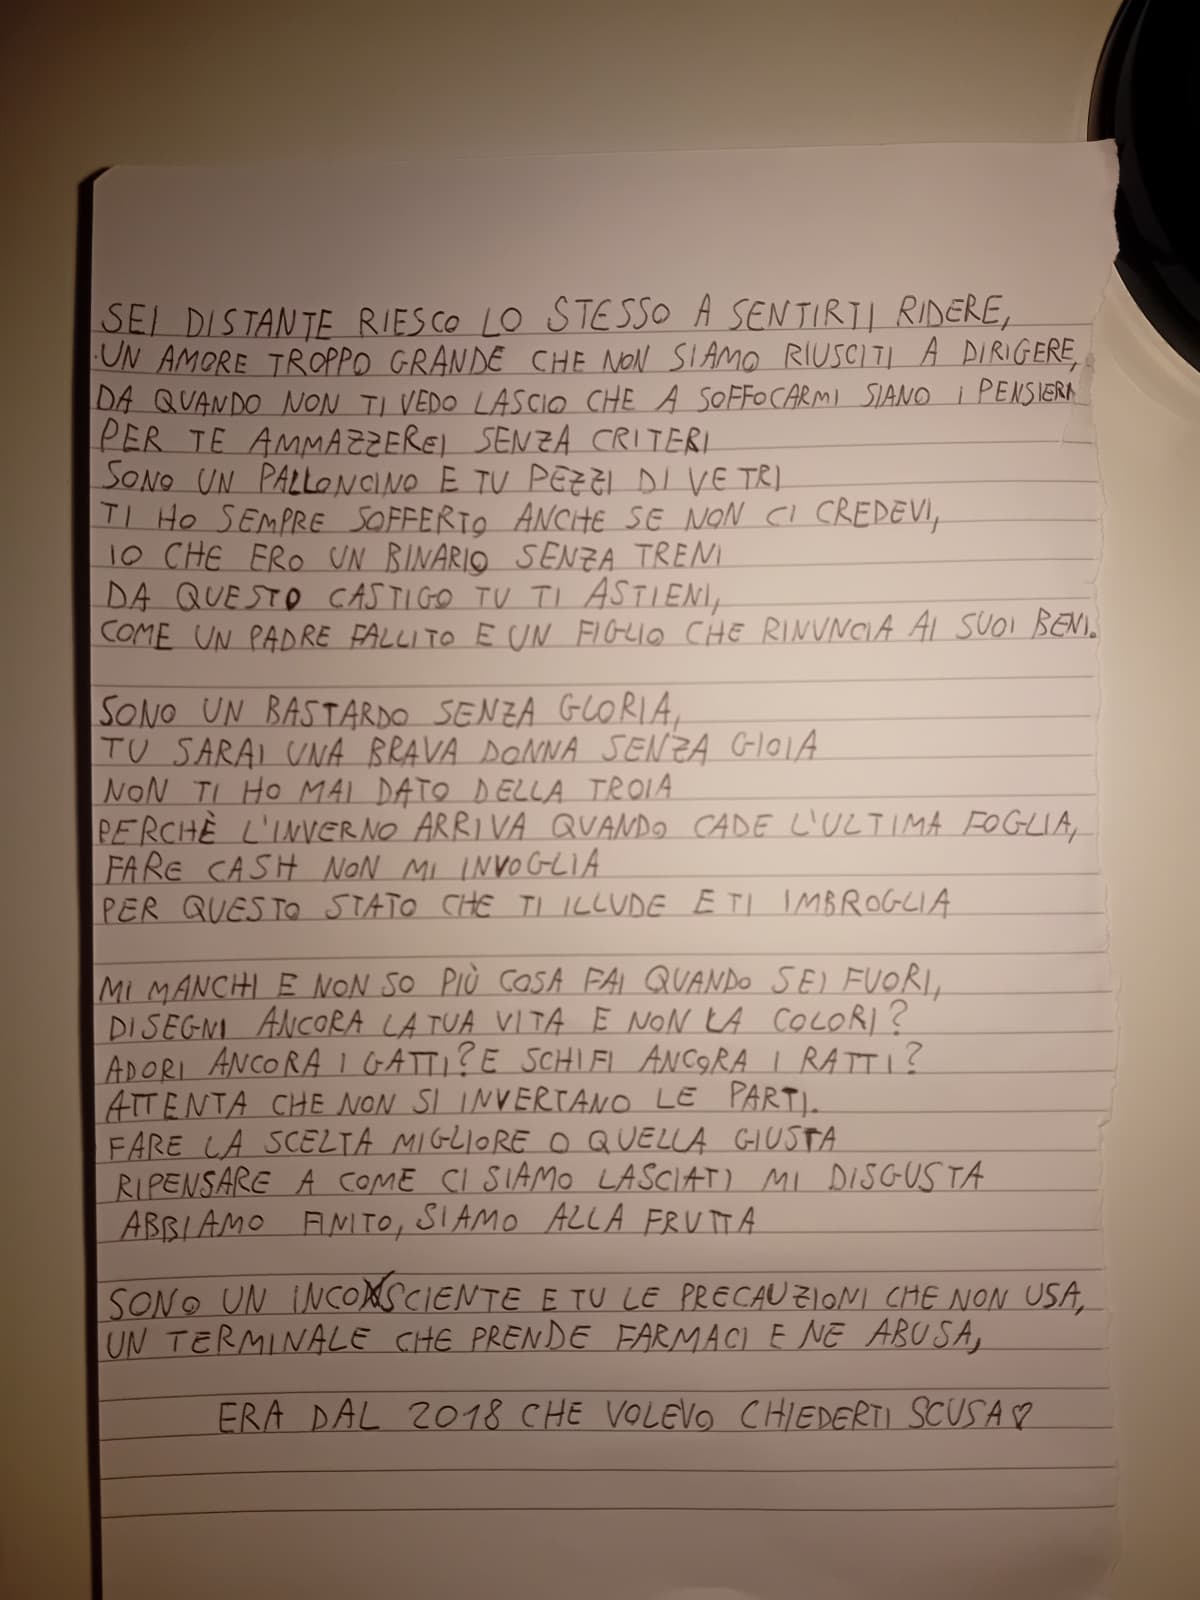 SEI DISTANTE RIESCO LO STESSO A SENTIRTI RIDERE,
UN AMORE TROPPO GRANDE CHE NON SIAMO RIUSCITI A DIRIGERE,
DA QUANDO NON TI VEDO LASCIO CHE A SOFFOCARMI SIANO I PENSIERI
PER TE AMMAZZEREI SENZA CRITERI
SONO UN PALLONCINO E TU PEZZI DI VETRI
TI HO SEMPRE SOFFERTO ANCHE SE NON CI CREDEVI,
IO CHE ERO UN BINARIO SENZA TRENI
DA QUESTO CASTIGO TU TI ASTIENI,
COME UN PADRE FALLITO E UN FIGLIO CHE RINUNCIA AI SUOI BENI.
SONO UN BASTARDO SENZA GLORIA,
TU SARAI UNA BRAVA DONNA SENZA GIOIA
NON TI HO MAI DATO DELLA TROIA
PERCHÈ L'INVERNO ARRIVA QUANDO CADE L'ULTIMA FOGLIA,
FARE CASH NON MI INVOGLIA
PER QUESTO STATO CHE TI ILLUDE E TI IMBROGLIA
MI MANCHI E NON SO PIÙ COSA FAI QUANDO SEI FUORI,
DISEGNI ANCORA LA TUA VITA E NON LA COLORI?
ADORI ANCORA I GATTI? E SCHIFI ANCORA I RATTI?
ATTENTA CHE NON SI INVERTANO LE PARTI.
FARE LA SCELTA MIGLIORE O QUELLA GIUSTA
RIPENSARE A COME CI SIAMO LASCIATI MI DISGUSTA
ABBIAMO FINITO, SIAMO ALLA FRUTTA
SONO UN INCOSCIENTE E TU LE PRECAUZIONI CHE NON USA,
UN TERMINALE CHE PRENDE FARMACI E NE ABUSA,
ERA DAL 2018 CHE VOLEVO CHIEDERTI SCUSA♡